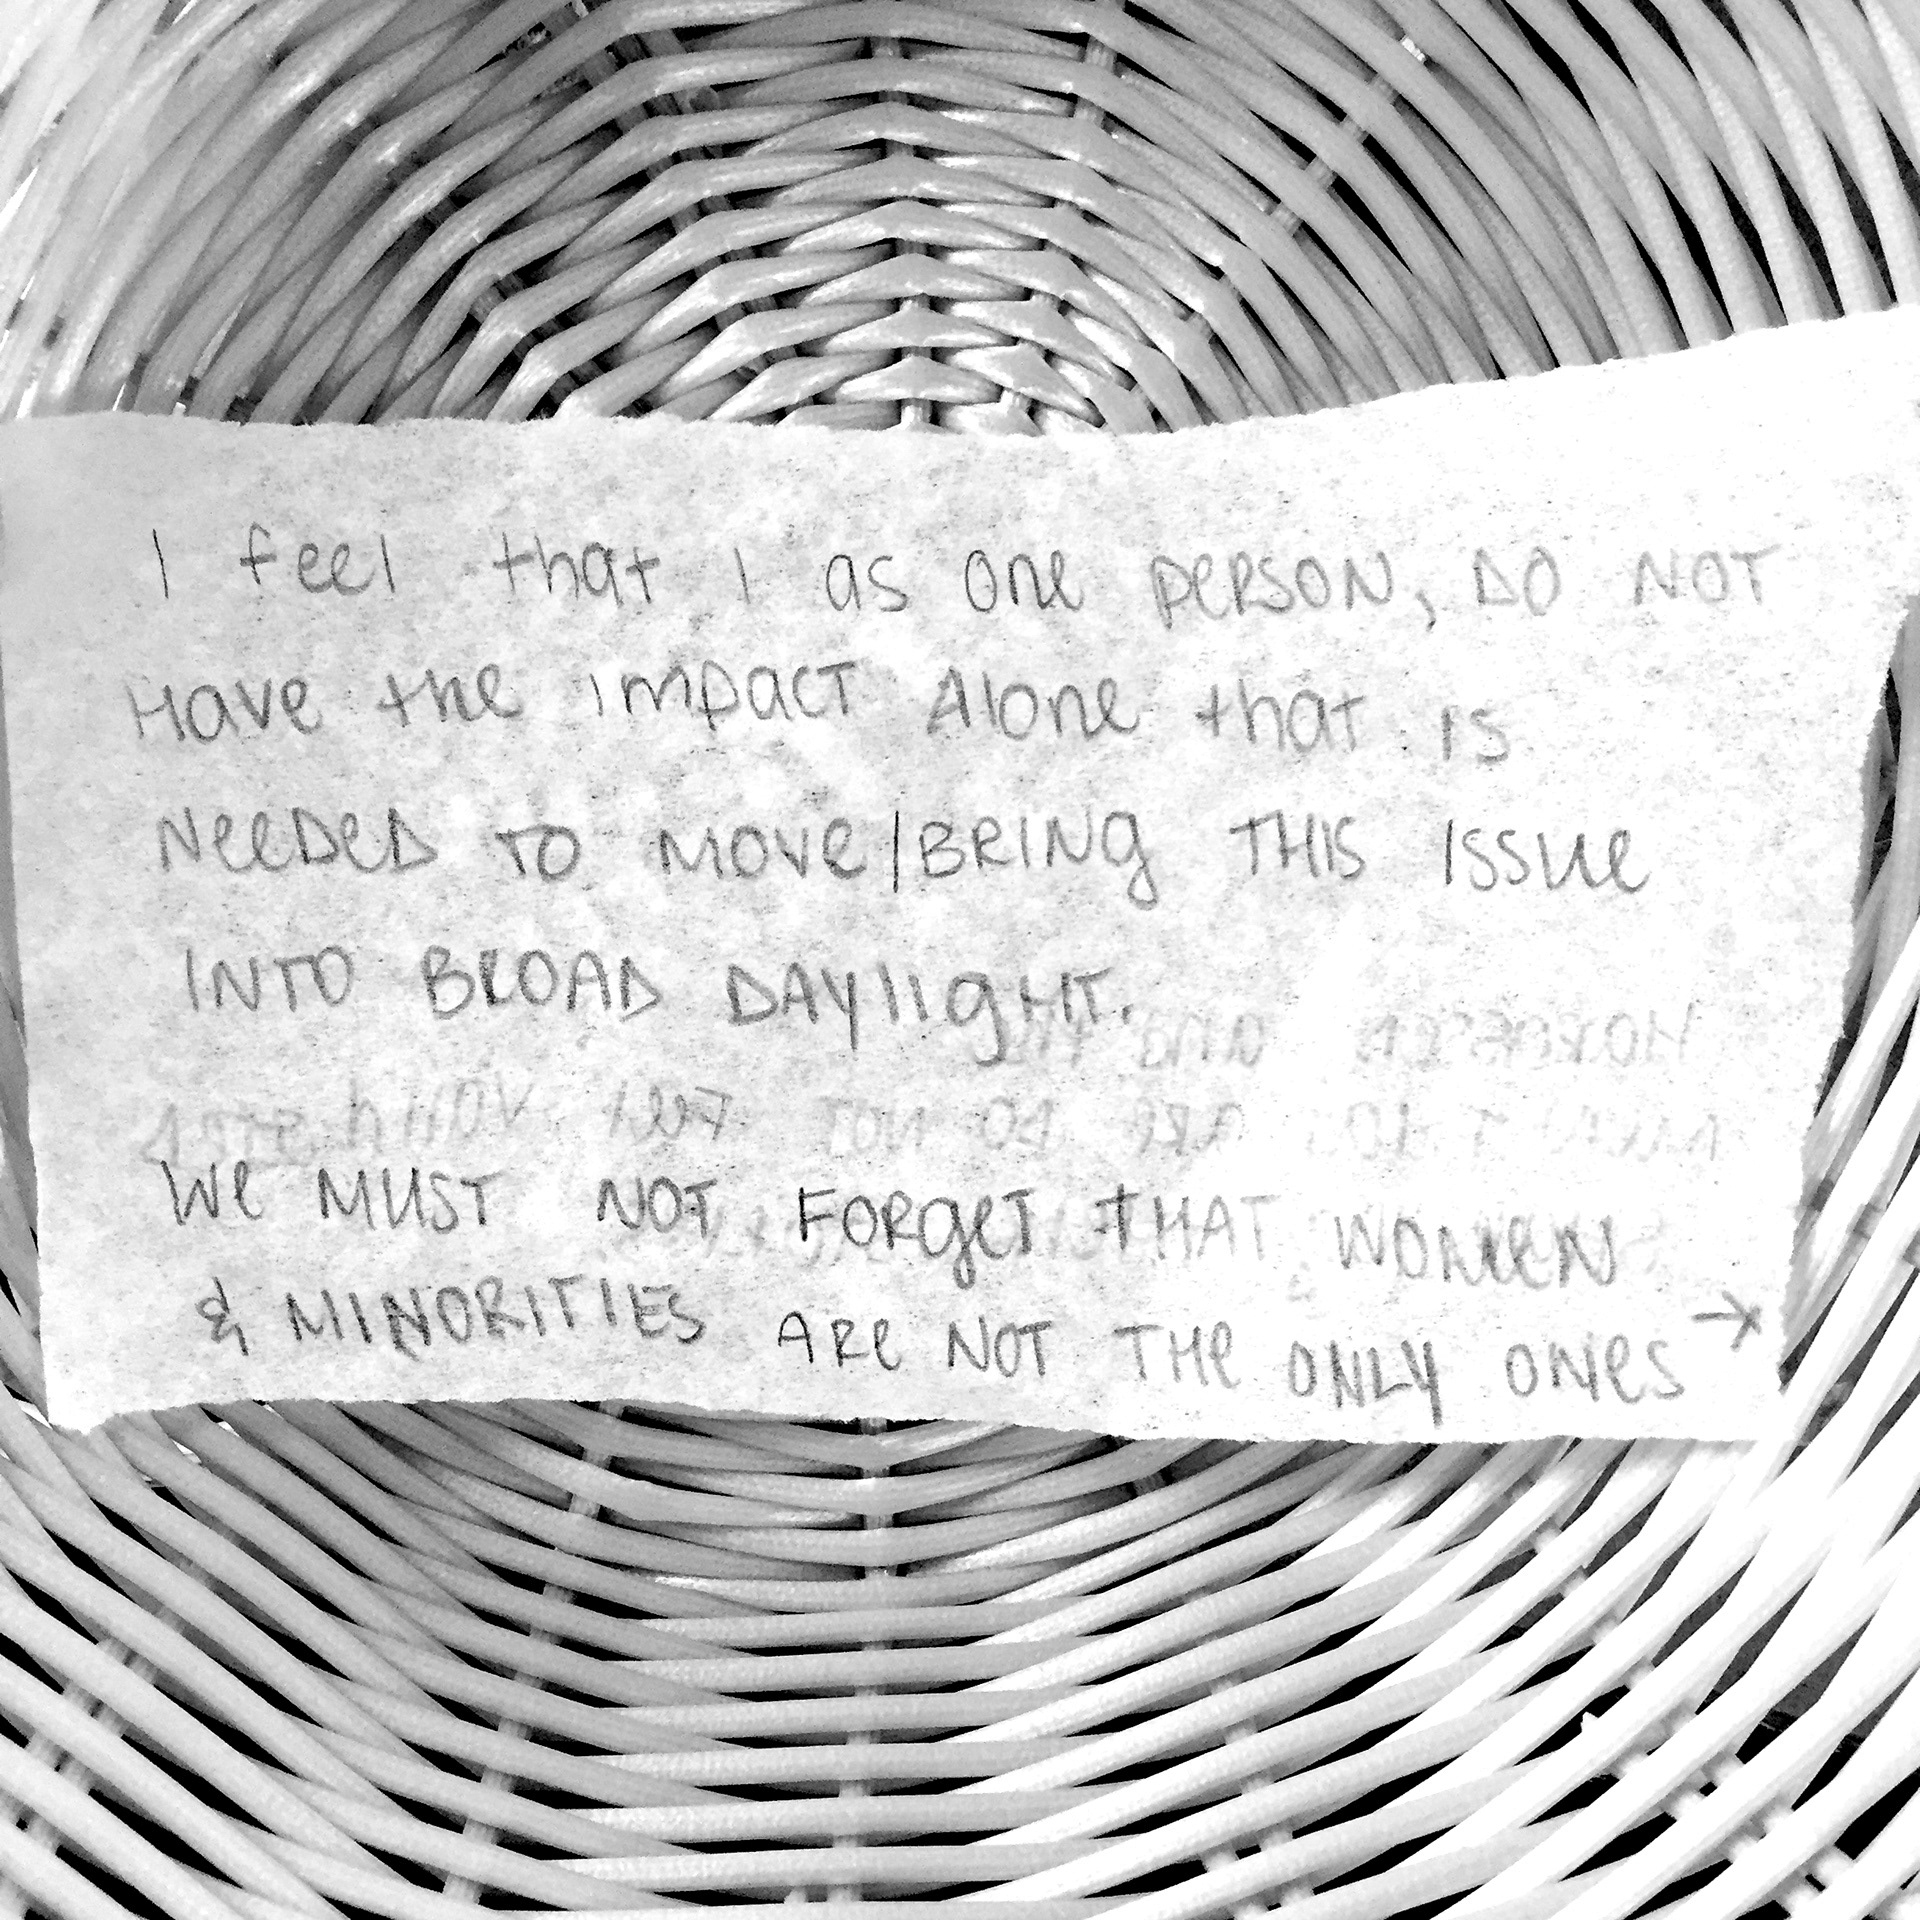 I feel that I as one person, DO NOT
Have the impact Alone that is
NeeDeD TO MOVe/BRINg THIS ISSUe
INTO BROAD DAYlIgHT.
We MUST NOT FORgeT THAT WOMeN
& MINORITIES ARe NOT THe ONLY ONes →